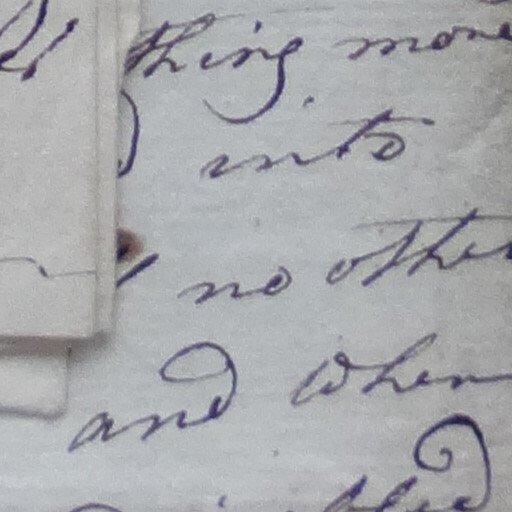 thing more
into
no other
and when